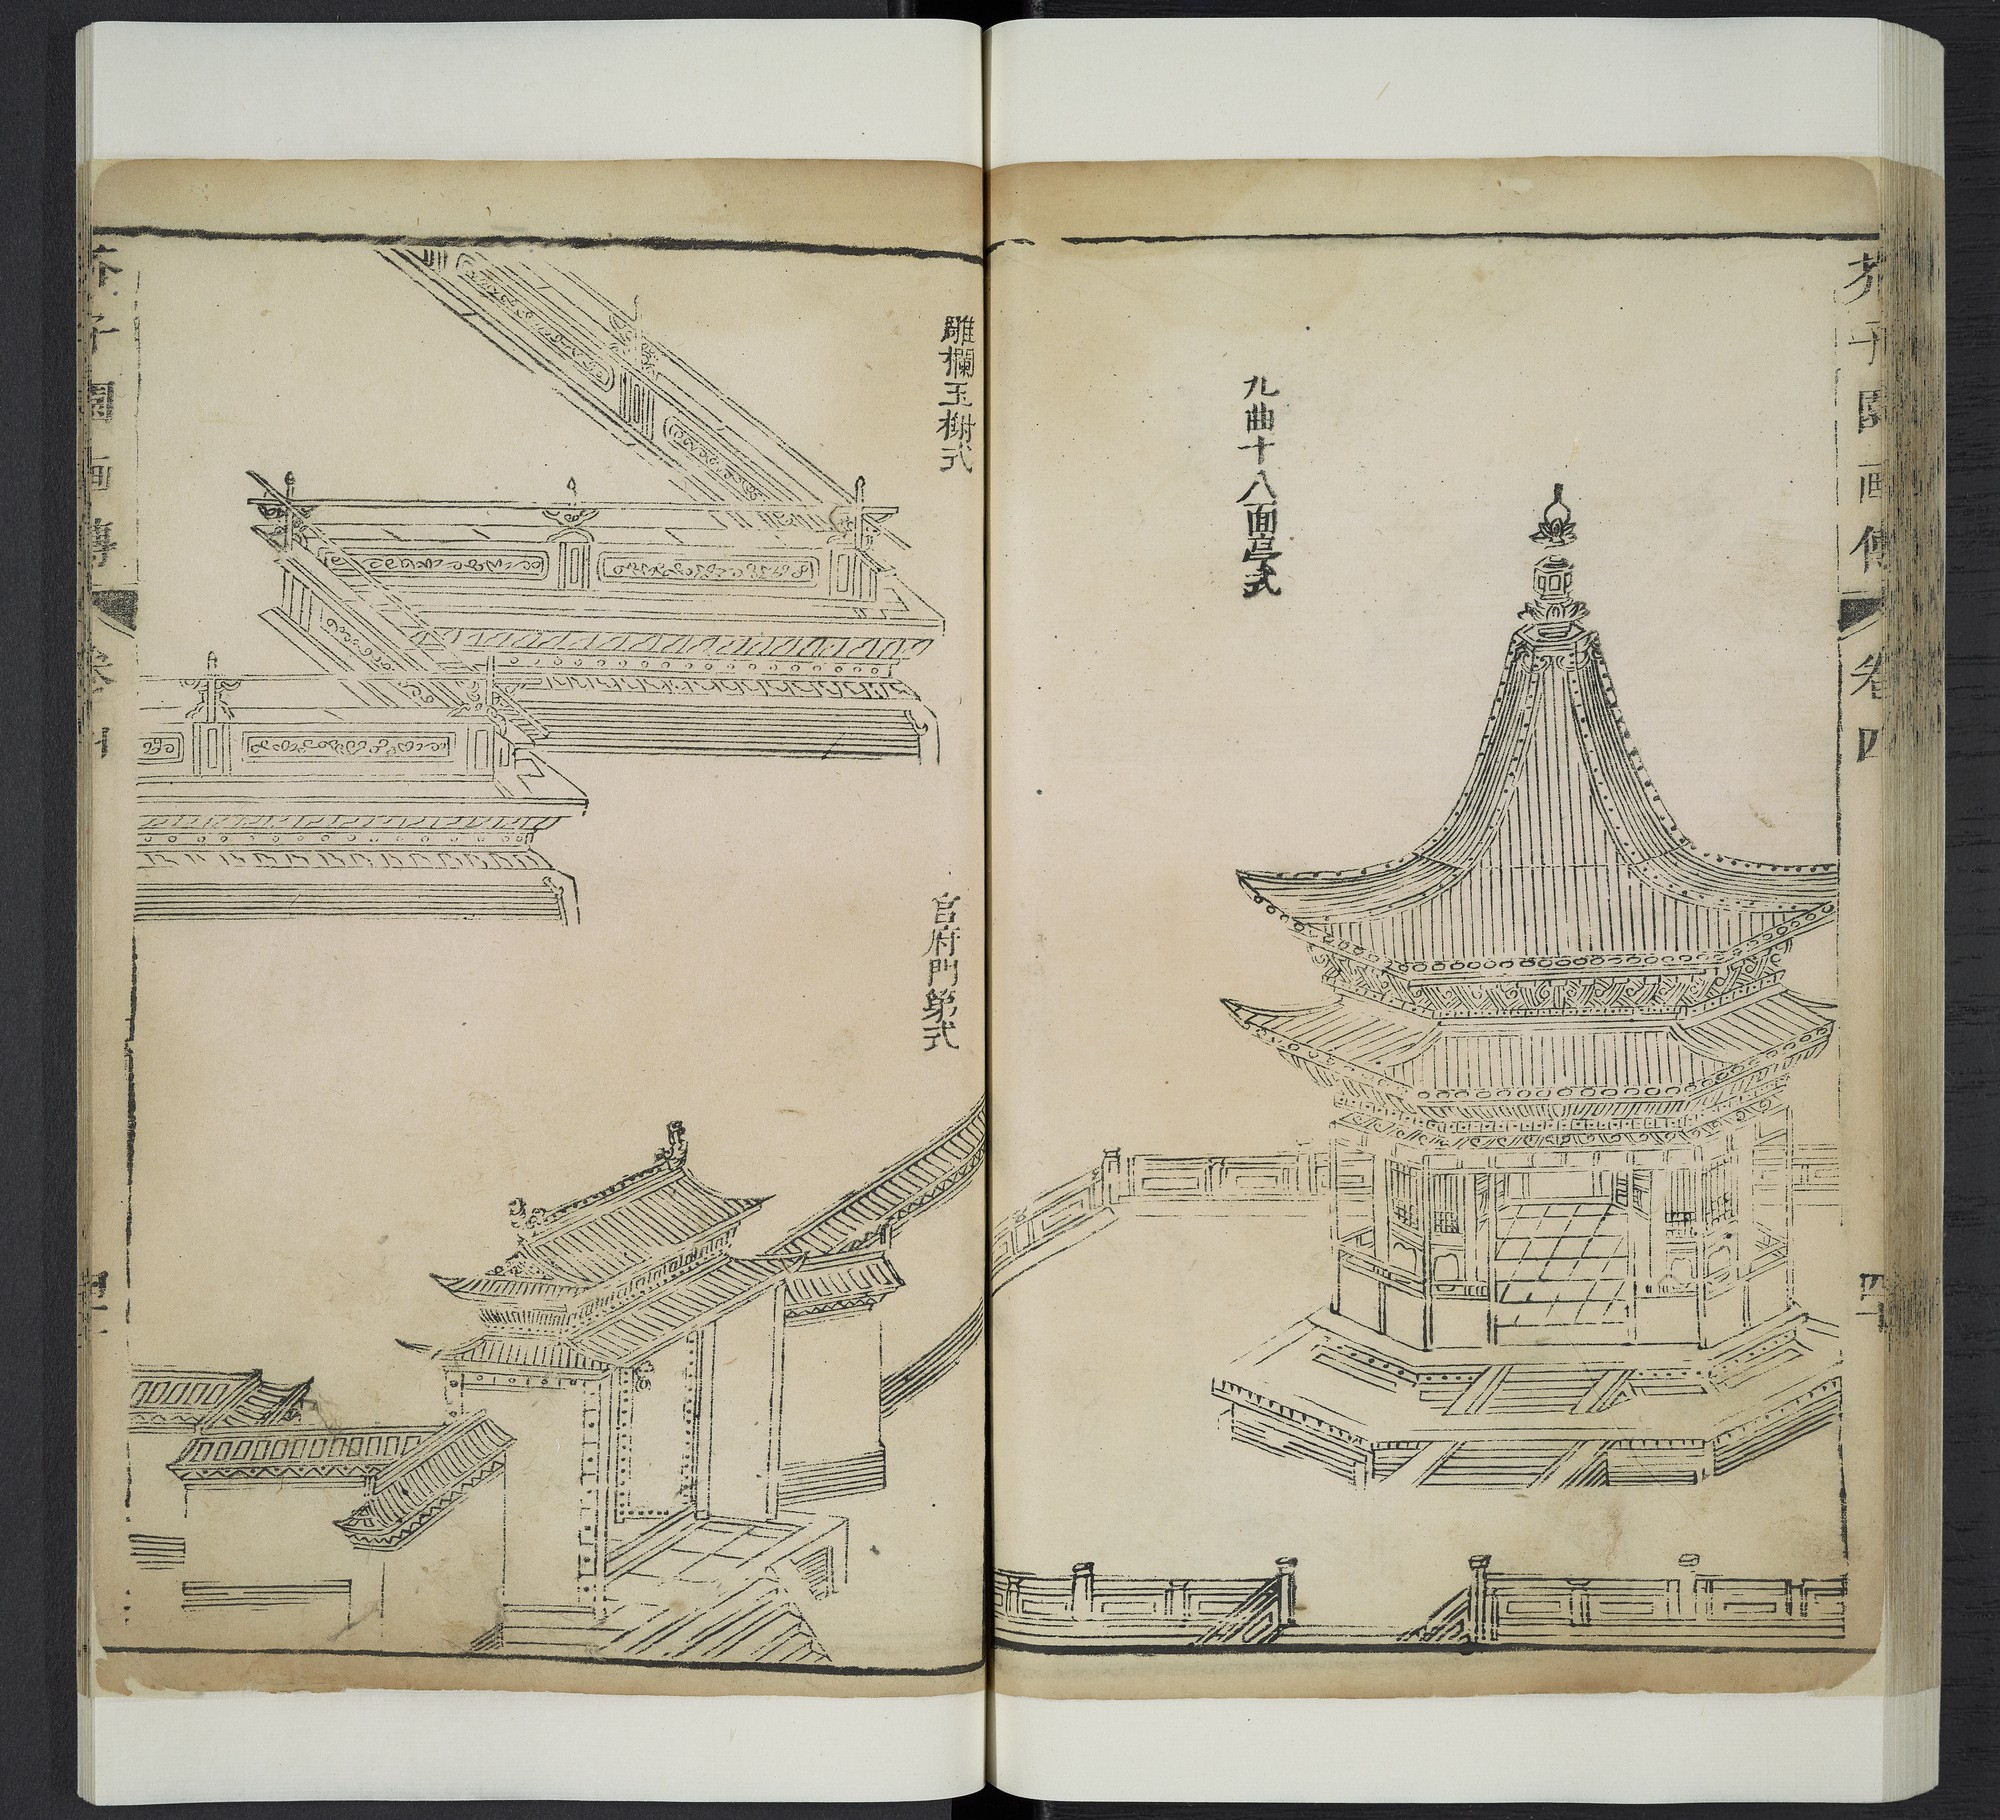 芥子園画傳
卷四
四十
九曲十八面亭式
雕欄玉樹式
官府門第式
芥子園画傳
卷四